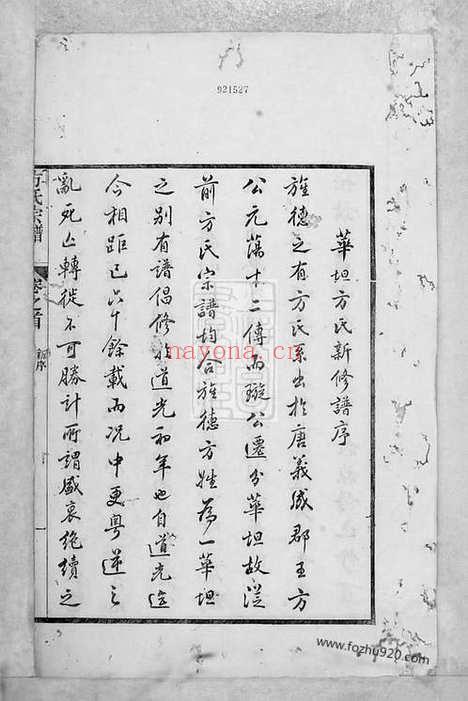 921527
華坦方氏新修譜序
旌德之有方氏系出於唐義威郡王方
公元蕩十二傳而璇公遷分華坦故從
前方氏宗譜均合旌德方姓為一華坦
之別有譜倡修於道光初年也自道光迄
今相距已六十餘載而況中更粵逆之
亂死亡轉徙不可勝計所謂盛衰絕續之
方氏宗譜
卷之首
序
nayona.cn
www.fozhu920.com